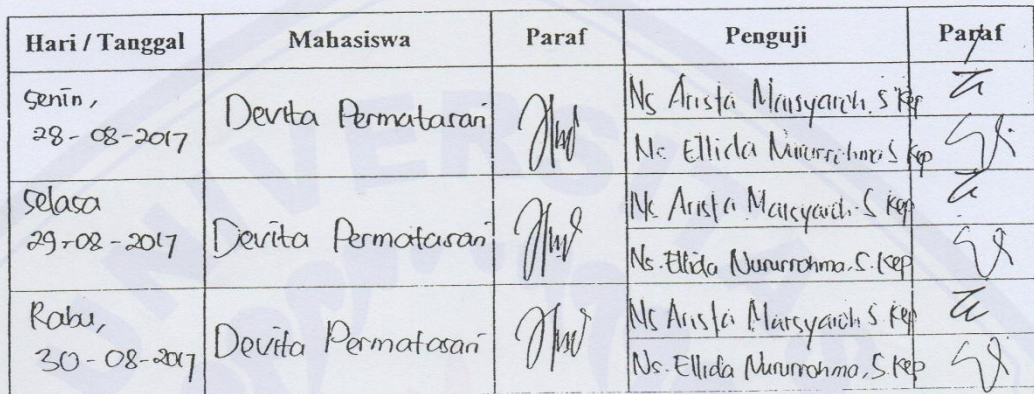 Hari / Tanggal Mahasiswa Paraf Penguji Paraf
Senin,
28-08-2017
Devita Permatasari
Ns Arista Marsyarah. S Kep
Ns Ellida Nururrohma S Kep
Selasa
29-08-2017
Devita Permatasari
Ns Arista Marsyarah. S Kep
Ns. Ellida Nururrohma. S. Kep
Rabu,
30-08-2017
Devita Permatasari
Ns Arista Marsyarah S Kep
Ns. Ellida Nururrohma, S. Kep
UNIVERSITA